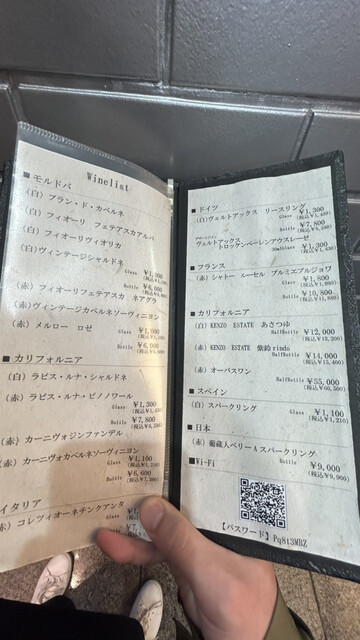 Winelist
■モルドバ
(白) ブラン・ド・カベルネ
(白) フィオーリ フェテアスカアルバ
(白) フィオーリヴィオリカ
(白) ヴィンテージシャルドネ
Glass ¥1,000
Bottle ¥6,000
(赤) フィオーリフェテアスカ ネアグラ
(赤) ヴィンテージカベルネソーヴィニヨン
(赤) メルロー ロゼ
Glass ¥1,000
Bottle ¥6,000
■カリフォルニア
(白) ラピス・ルナ・シャルドネ
(赤) ラピス・ルナ・ピノノワール
Glass ¥1,300
Bottle ¥7,800
(赤) カーニヴォジンファンデル
(赤) カーニヴォカベルネソーヴィニヨン
Glass ¥1,100
Bottle ¥6,600
イタリア
(赤) コレツィオーネチンクアンタ
Glass
■ドイツ
(白) ヴェルトアックス リースリング
Glass ¥1,300
(税込¥1,430)
Bottle ¥7,800
ヴェルトアックス
トロッケンベーレンアウスレーゼ
30mlGlass ¥1,300
(税込¥1,430)
■フランス
(赤) シャトー ルーセル プルミエブルジョワ
Glass ¥1,800
(税込¥1,980)
Bottle ¥10,800
(税込¥11,880)
■カリフォルニア
(白) KENZO ESTATE あさつゆ
HalfBottle ¥12,000
(税込¥13,200)
(赤) KENZO ESTATE 紫鈴rindo
HalfBottle ¥14,000
(税込¥15,400)
(赤) オーパスワン
HalfBottle ¥55,000
(税込¥60,500)
■スペイン
(白) スパークリング
Glass ¥1,100
(税込¥1,210)
■日本
(赤) 葡蔵人ベリーAスパークリング
Bottle ¥9,000
(税込¥9,900)
■Wi-Fi
【パスワード】Pq813MBZ